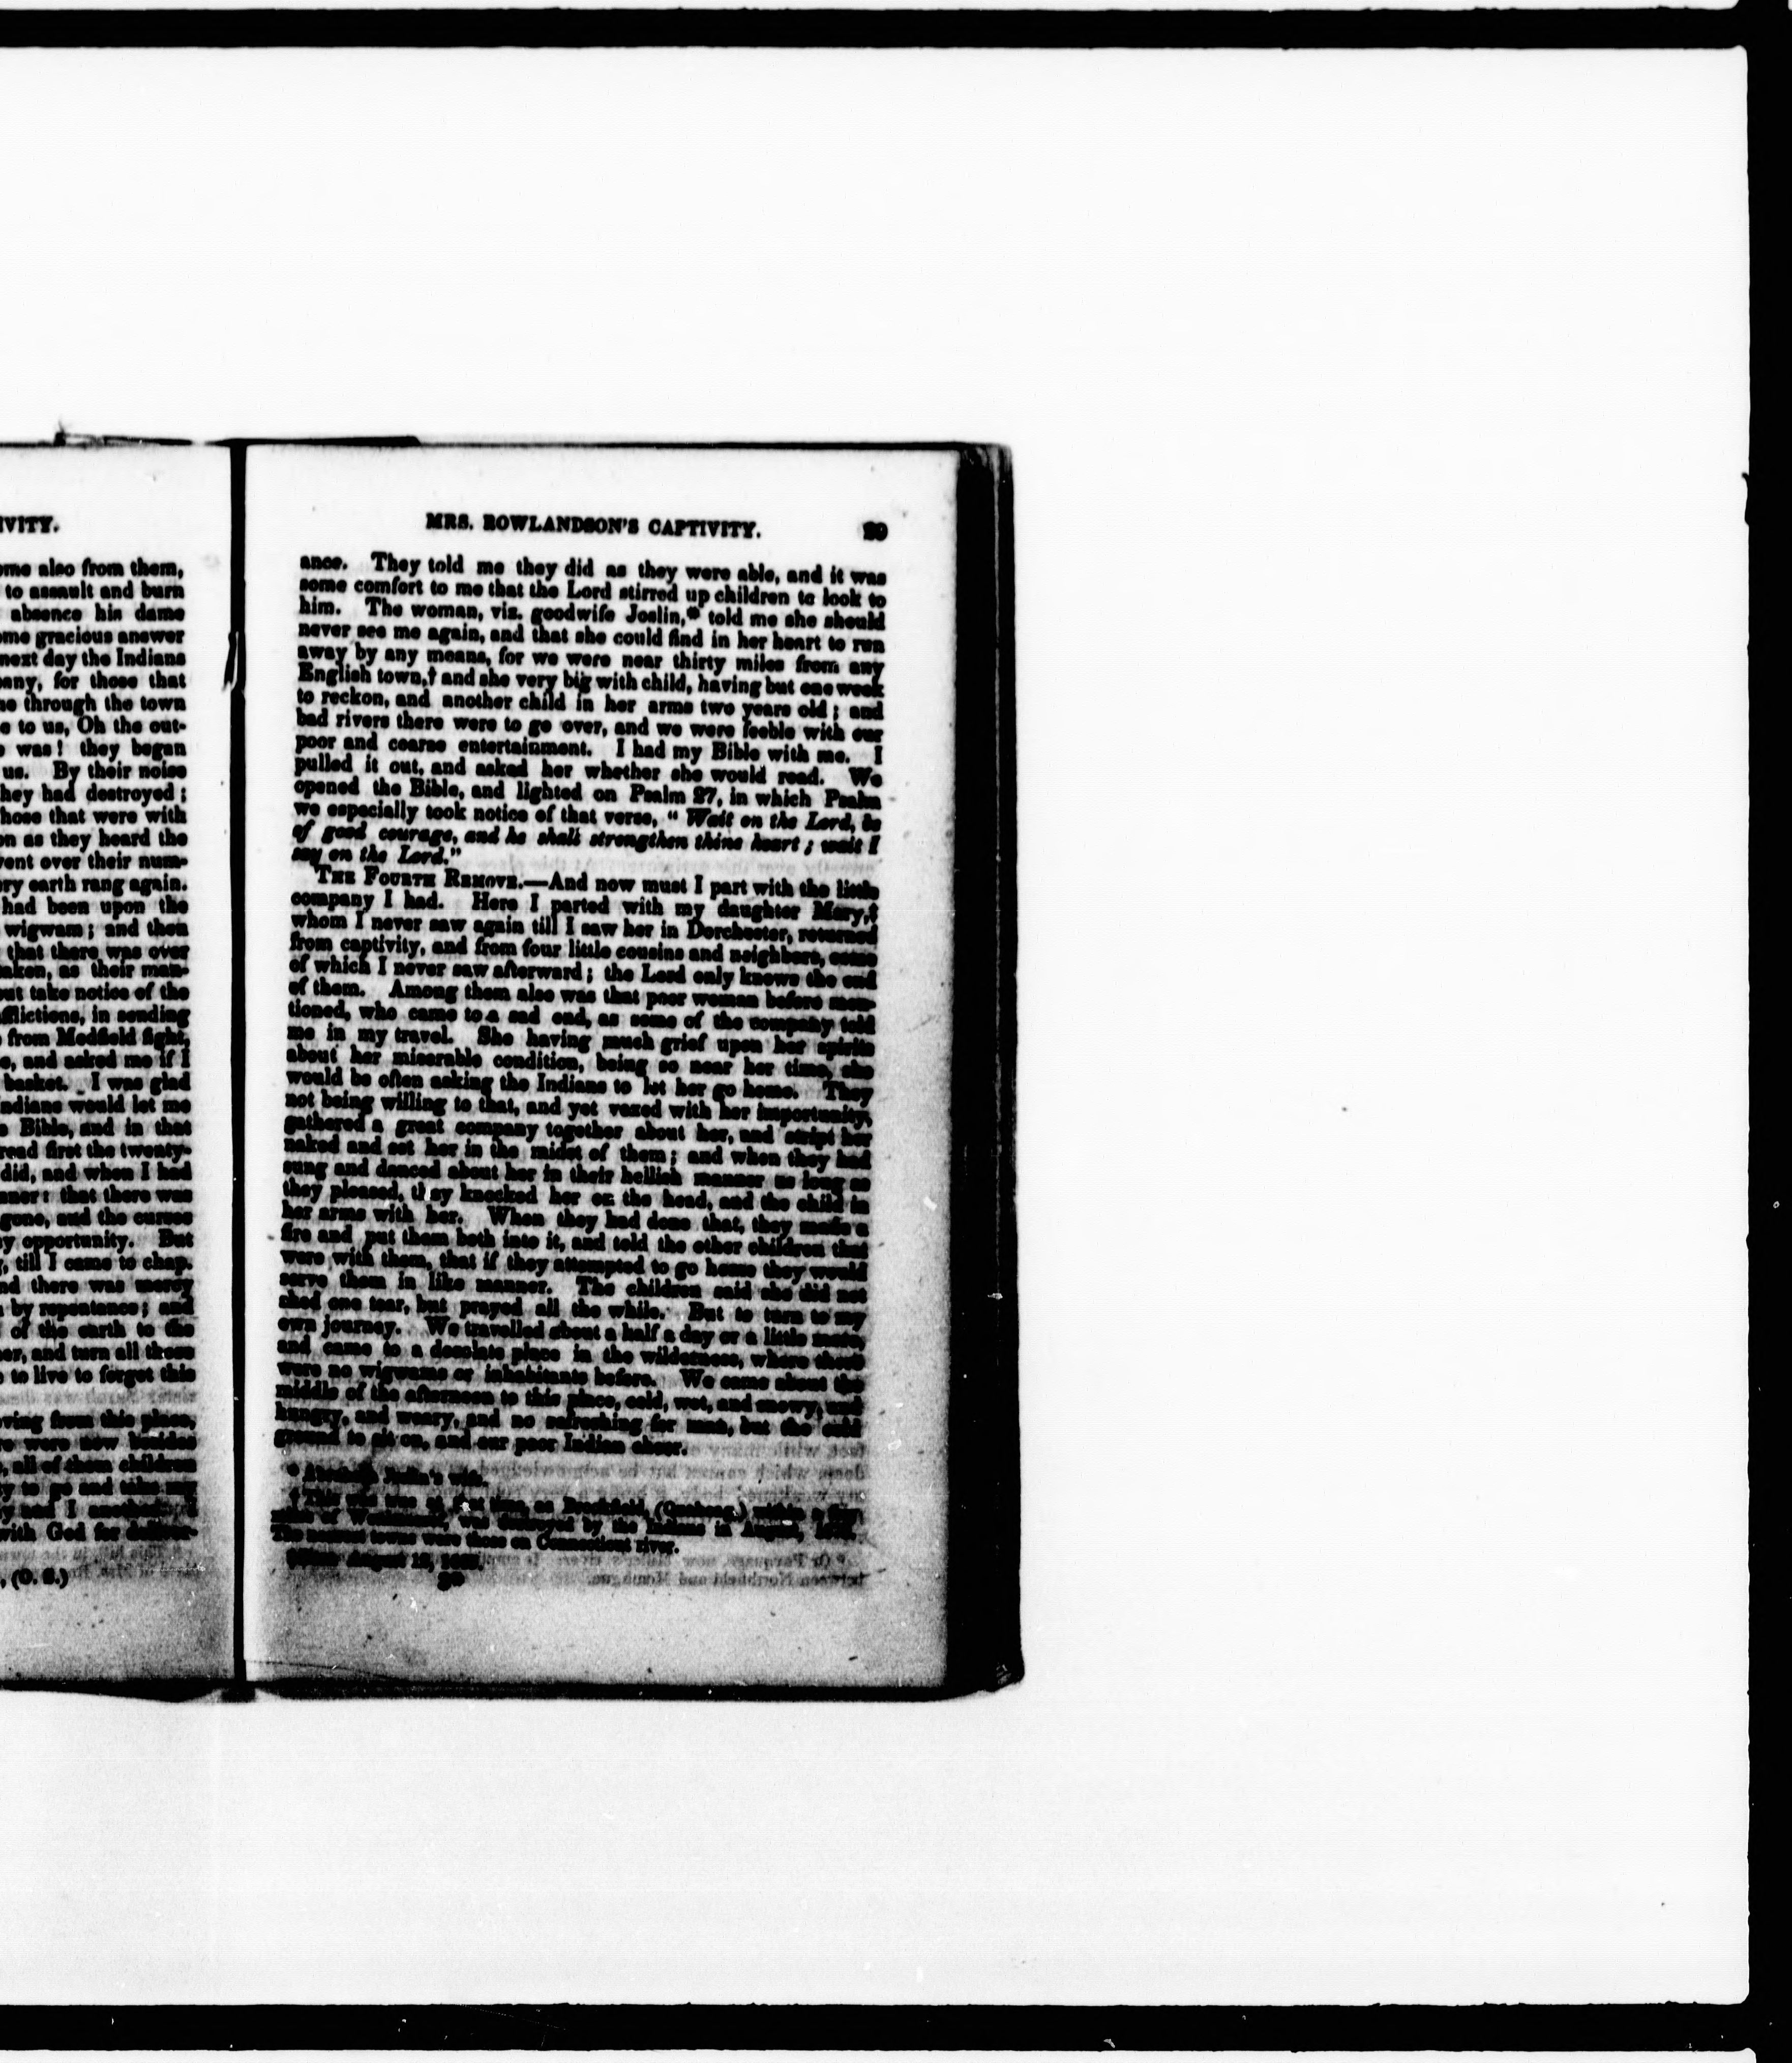 IVITY.
ome also from them,
to assault and burn
absence his dame
ome gracious answer
next day the Indians
pany, for those that
me through the town
e to us, Oh the out-
was! they began
us. By their noise
they had destroyed;
those that were with
on as they heard the
went over their num-
ery earth rang again.
had been upon the
wigwam; and then
that there was over
taken, as their man-
but take notice of the
afflictions, in sending
from Medfield fight,
e, and asked me if I
basket. I was glad
Indians would let me
Bible, and in that
read first the twenty-
did, and when I had
nner: that there was
gone, and the curses
my opportunity. But
till I came to chap.
and there was mercy
by repentance; and
of the earth to the
er, and turn all these
to live to forget this
oving from this place,
were now besides
all of them children
to go and take my
and I
with God for deliver-
(O. S.)
MRS. ROWLANDSON'S CAPTIVITY. 29
ance. They told me they did as they were able, and it was
some comfort to me that the Lord stirred up children to look to
him. The woman, viz. goodwife Joslin,* told me she should
never see me again, and that she could find in her heart to run
away by any means, for we were near thirty miles from any
English town,† and she very big with child, having but one week
to reckon, and another child in her arms two years old; and
bad rivers there were to go over, and we were feeble with our
poor and coarse entertainment. I had my Bible with me. I
pulled it out, and asked her whether she would read. We
opened the Bible, and lighted on Psalm 27, in which Psalm
we especially took notice of that verse, "Wait on the Lord, be
of good courage, and he shall strengthen thine heart; wait I
say on the Lord."
THE FOURTH REMOVE.—And now must I part with the little
company I had. Here I parted with my daughter Mary,‡
whom I never saw again till I saw her in Dorchester, returned
from captivity, and from four little cousins and neighbors, some
of which I never saw afterward; the Lord only knows the end
of them. Among them also was that poor woman before men-
tioned, who came to a sad end, as some of the company told
me in my travel. She having much grief upon her spirits
about her miserable condition, being so near her time, she
would be often asking the Indians to let her go home. They
not being willing to that, and yet vexed with her importunity,
gathered a great company together about her, and stript her
naked and set her in the midst of them; and when they had
sung and danced about her in their hellish manner as long as
they pleased, they knocked her on the head, and the child in
her arms with her. When they had done that, they made a
fire and put them both into it, and told the other children that
were with them, that if they attempted to go home they would
serve them in like manner. The children said she did not
shed one tear, but prayed all the while. But to turn to my
own journey. We travelled about a half a day or a little more,
and came to a desolate place in the wilderness, where there
were no wigwams or inhabitants before. We came about the
middle of the afternoon to this place, cold, wet, and snowy, and
hungry, and weary, and no refreshing for man, but the cold
ground to sit on, and our poor Indian cheer.
* Joslin's wife.
time, as Brookfield, (Quabaog,) within a few
miles of was destroyed by the Indians in August,
The nearest towns were those on Connecticut river.
August
3*